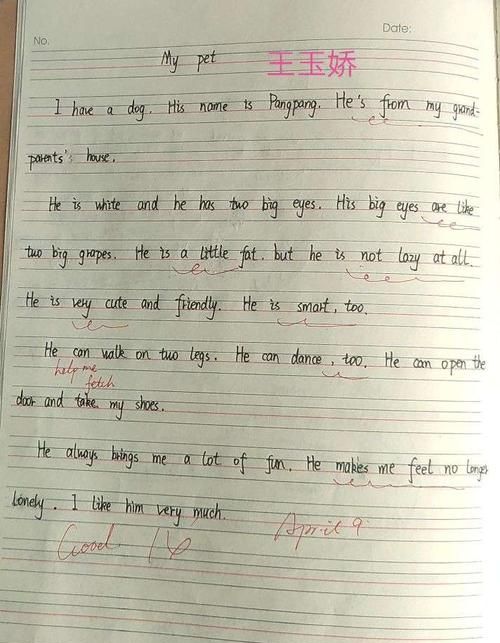 No.
Date:
My pet
王玉娇
I have a dog. His name is Pangpang. He's from my grand-
parents's house.
He is white and he has two big eyes. His big eyes are like
two big grapes. He is a little fat. but he is not lazy at all.
He is very cute and friendly. He is smart, too.
He can walk on two legs. He can dance, too. He can open the
help me
fetch
door and take my shoes.
He always brings me a lot of fun. He makes me feel no longer
lonely. I like him very much.
Good
April 9